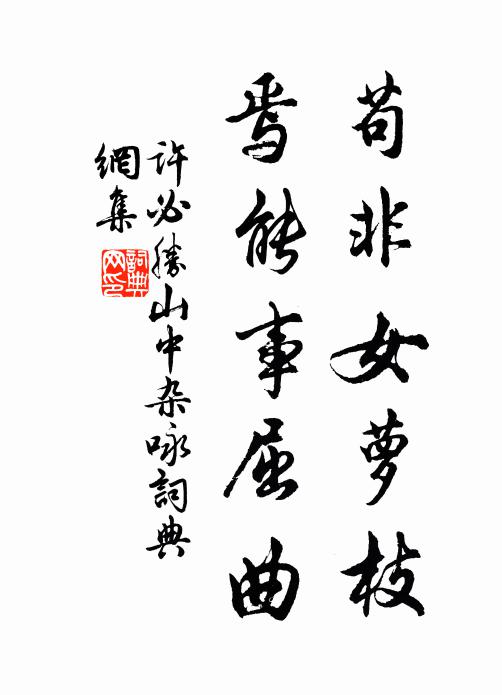 苟非女萝枝
焉能事屈曲
许必胜山中杂咏詞典
網集
詞典网印